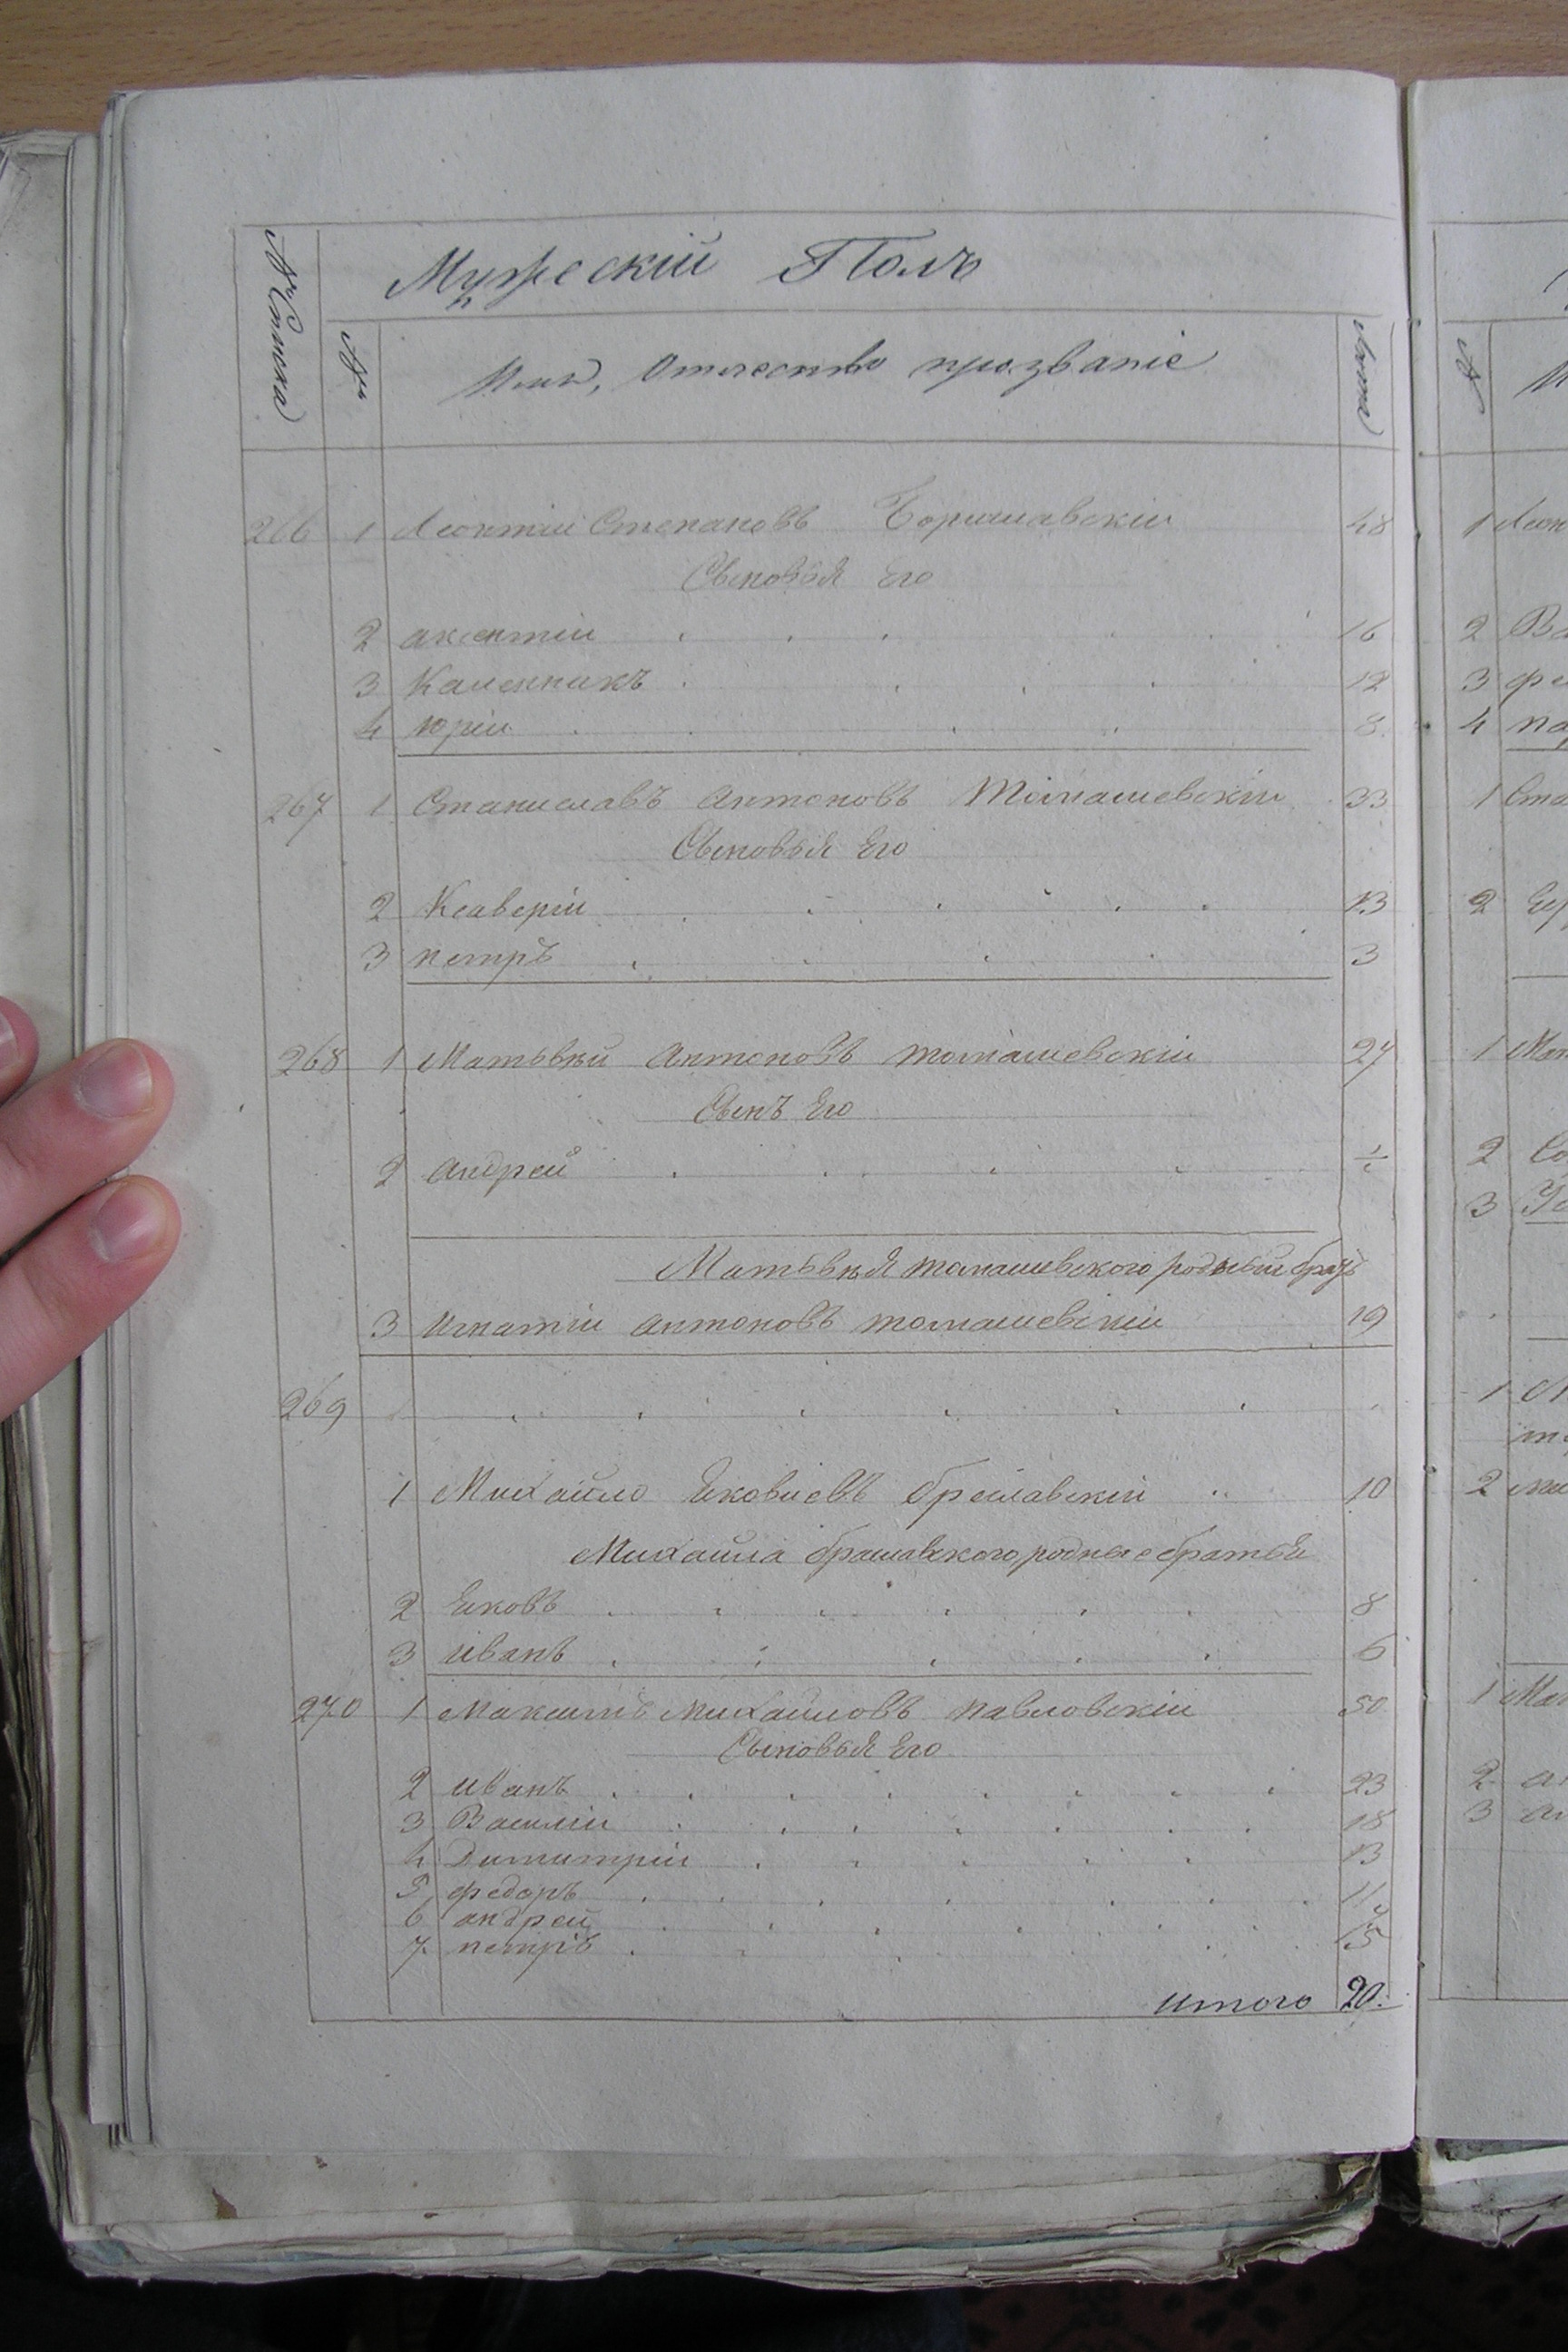 Мужескій Полъ
№ Списка
№
Имя, Отчество прозваніе
Лѣта
№
266 1 Леонтій Степановъ Боришавскій 48
1 Леон
Сыновья Его
2 аксентій 16
2 Ва
3 Каленникъ 12
3 фе
4 юрій 8
4 па
267 1 Станиславъ Антоновъ Томашевскій 33
1 Ста
Сыновья Его
2 Ксаверій 13
2
3 петръ 3
268 1 Матьвѣй Антоновъ томашевскій 27
1 Мат
Сынъ Его
2 андрей ½
2 Со
3
Матьвѣя томашевского родный братъ
3 игнатій антоновъ томашевскій 19
269
1 М
1 Михайло Яковлевъ бреславскій 10
2 ма
Михайла браславского родные братья
2 Яковъ 8
3 иванъ 6
270 1 Максимъ Михайловъ павловскій 50
1 Мат
Сыновья Его
2 иванъ 23
2 ан
3 Василій 18
3 ан
4 Димитрій 13
5 федоръ 11
6 андрей
7 петръ 5
итого 20.